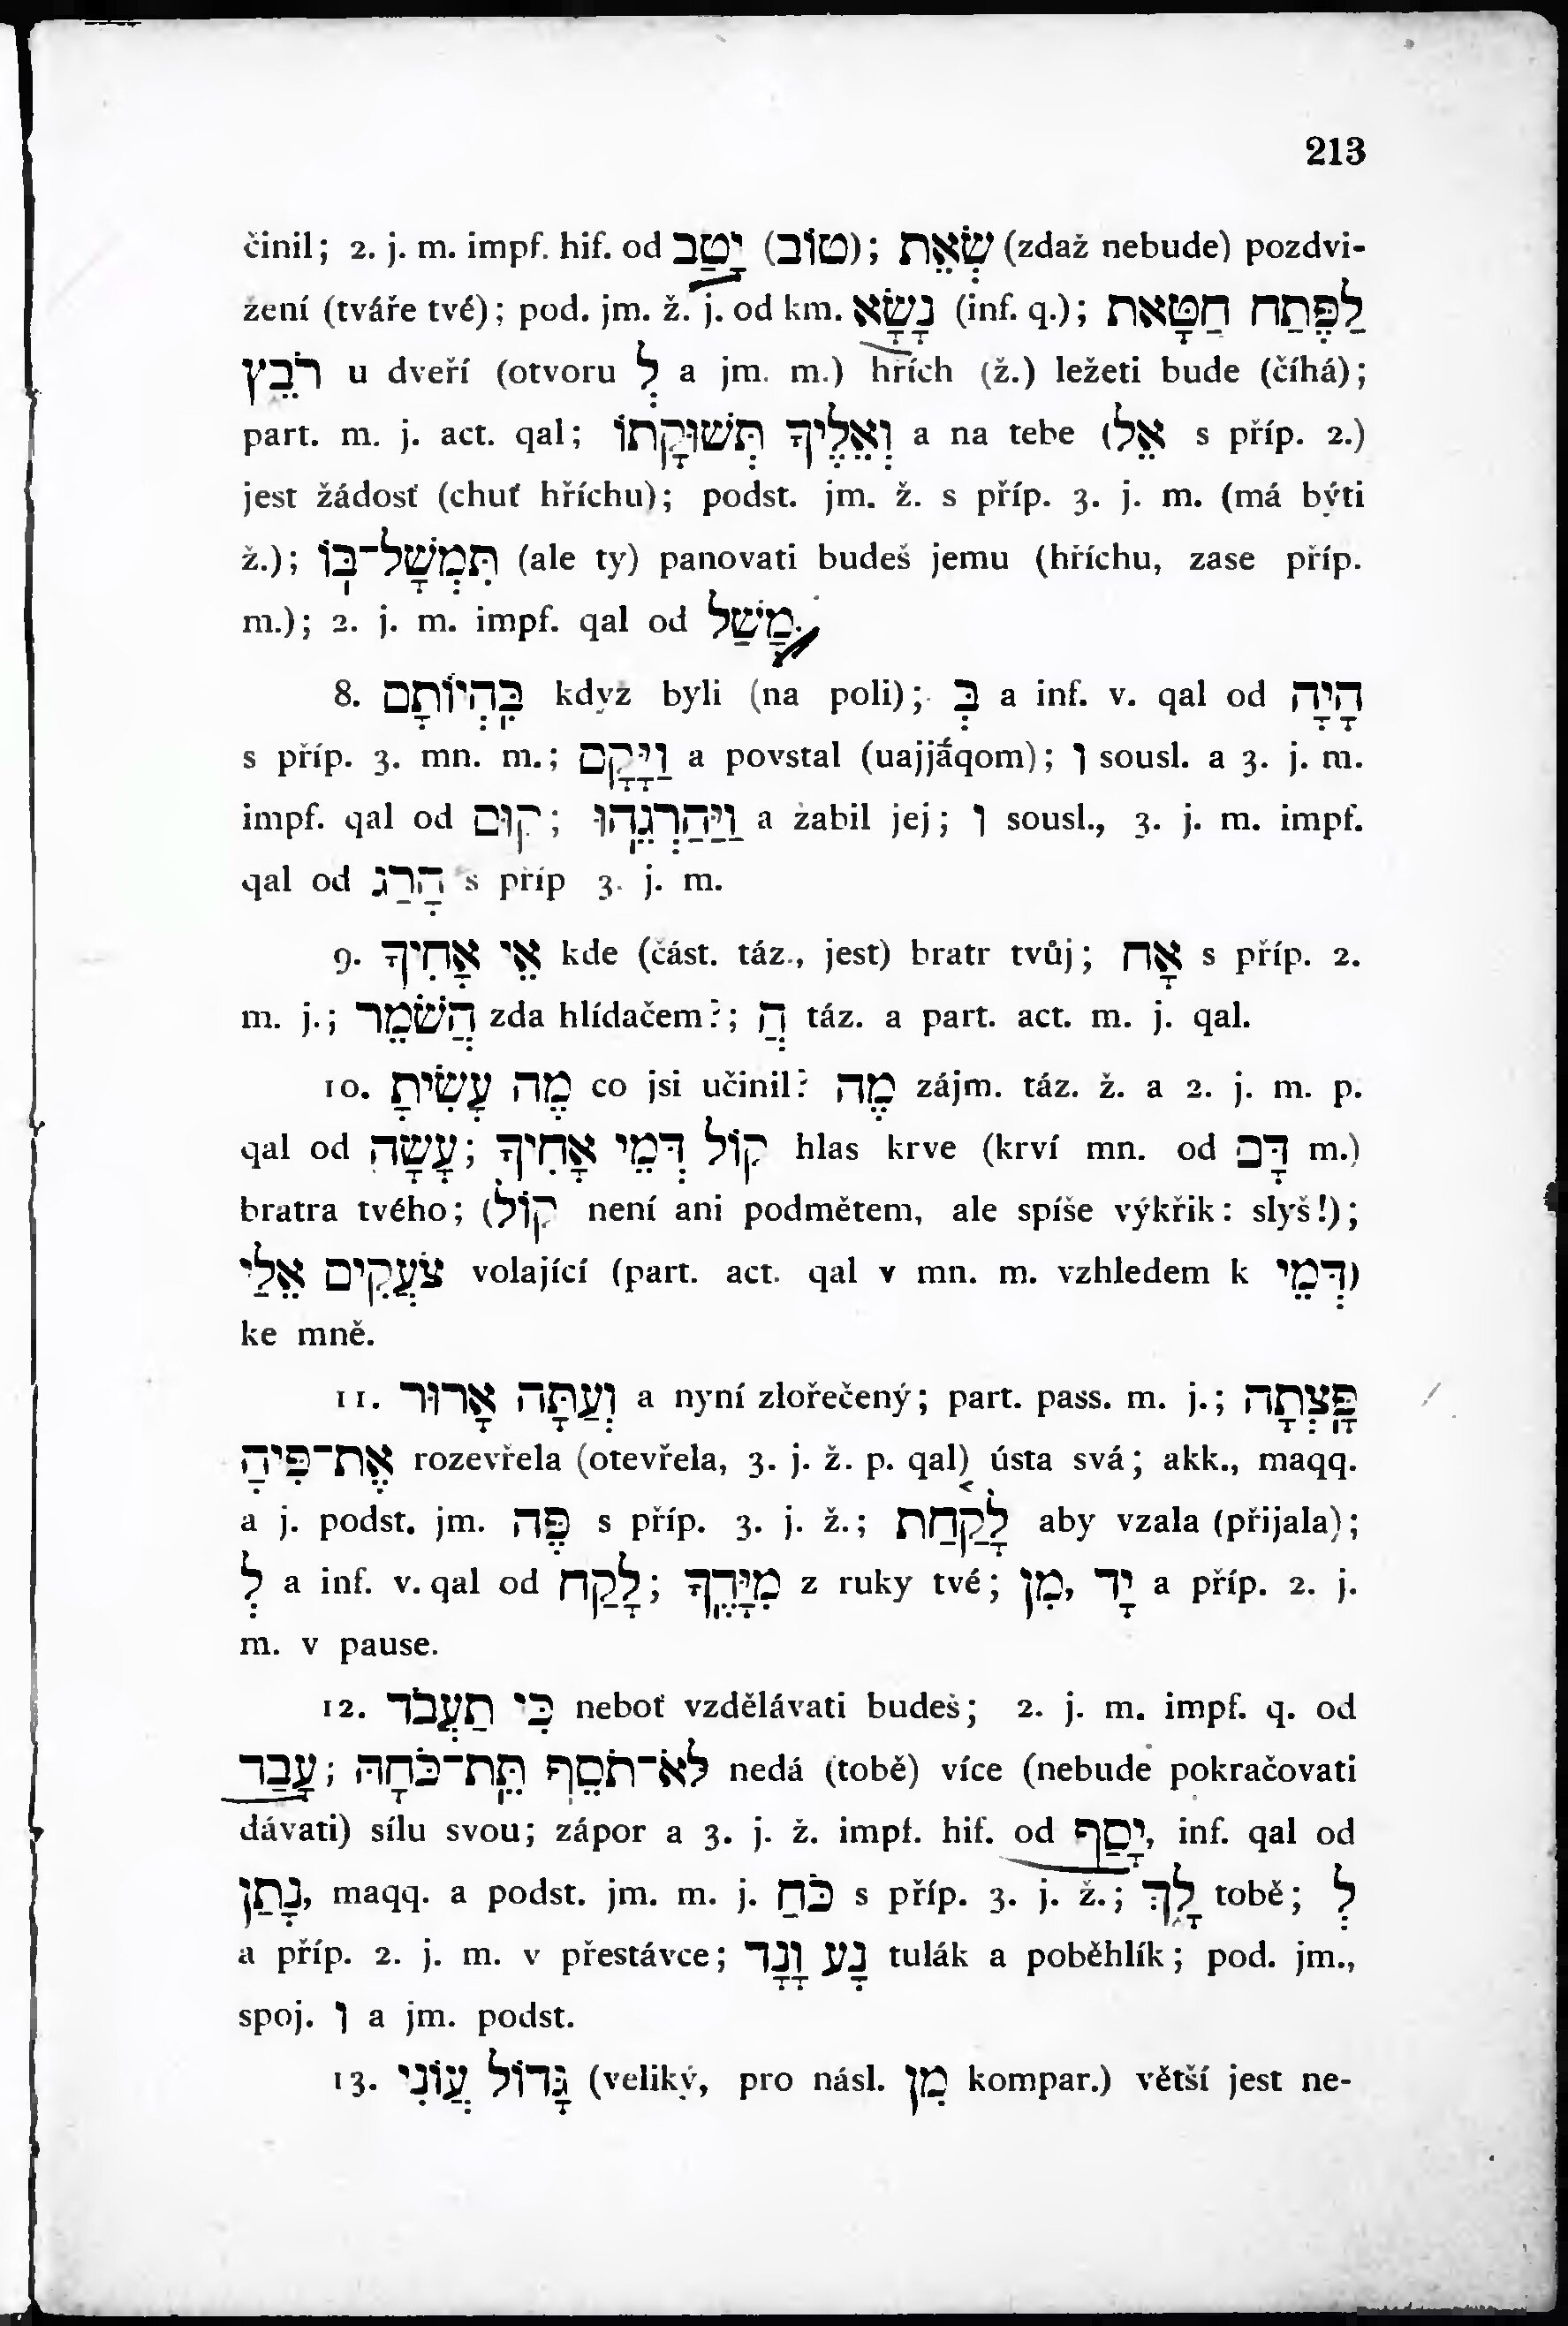 213
činil; 2. j. m. impf. hif. od יָטַב (טוֹב); שְׂאֵת (zdaž nebude) pozdvi-
žení (tváře tvé); pod. jm. ž. j. od km. נָשָׂא (inf. q.); לַפֶּתַח חַטָּאת
רֹבֵץ u dveří (otvoru לְ a jm. m.) hřích (ž.) ležeti bude (číhá);
part. m. j. act. qal; וְאֵלֶיךָ תְּשׁוּקָתוֹ a na tebe (אֵל s příp. 2.)
jest žádosť (chuť hříchu); podst. jm. ž. s příp. 3. j. m. (má býti
ž.); תִּמְשָׁל־בּוֹ (ale ty) panovati budeš jemu (hříchu, zase příp.
m.); 2. j. m. impf. qal od מָשַׁל.
8. בִּהְיוֹתָם když byli (na poli); בְּ a inf. v. qal od הָיָה
s příp. 3. mn. m.; וַיָּקָם a povstal (uajjāqom); ו sousl. a 3. j. m.
impf. qal od קוּם; וַיַּהַרְגֵהוּ a zabil jej; ו sousl., 3. j. m. impf.
qal od הָרַג s příp 3. j. m.
9. אֵי אָחִיךָ kde (část. táz., jest) bratr tvůj; אָח s příp. 2.
m. j.; הֲשֹׁמֵר zda hlídačem?; הֲ táz. a part. act. m. j. qal.
10. מֶה עָשִׂיתָ co jsi učinil? מֶה zájm. táz. ž. a 2. j. m. p.
qal od עָשָׂה; קוֹל דְּמֵי אָחִיךָ hlas krve (krví mn. od דָּם m.)
bratra tvého; (קוֹל není ani podmětem, ale spíše výkřik: slyš!);
צֹעֲקִים אֵלַי volající (part. act. qal v mn. m. vzhledem k דְּמֵי)
ke mně.
11. וְעַתָּה אָרוּר a nyní zlořečený; part. pass. m. j.; פָּצְתָה
אֶת־פִּיהָ rozevřela (otevřela, 3. j. ž. p. qal) ústa svá; akk., maqq.
a j. podst. jm. פֶּה s příp. 3. j. ž.; לָקַחַת aby vzala (přijala);
לְ a inf. v. qal od לָקַח; מִיָּדֶךָ z ruky tvé; מִן, יָד a příp. 2. j.
m. v pause.
12. כִּי תַעֲבֹד neboť vzdělávati budeš; 2. j. m. impf. q. od
עָבַד; לֹא־תֹסֵף תֵּת־כֹּחָהּ nedá (tobě) více (nebude pokračovati
dávati) sílu svou; zápor a 3. j. ž. impf. hif. od יָסַף, inf. qal od
נָתַן, maqq. a podst. jm. m. j. כֹּחַ s příp. 3. j. ž.; לָךְ tobě; לְ
a příp. 2. j. m. v přestávce; נָע וָנָד tulák a poběhlík; pod. jm.,
spoj. ו a jm. podst.
13. גָּדוֹל עֲוֹנִי (veliký, pro násl. מִן kompar.) větší jest ne-